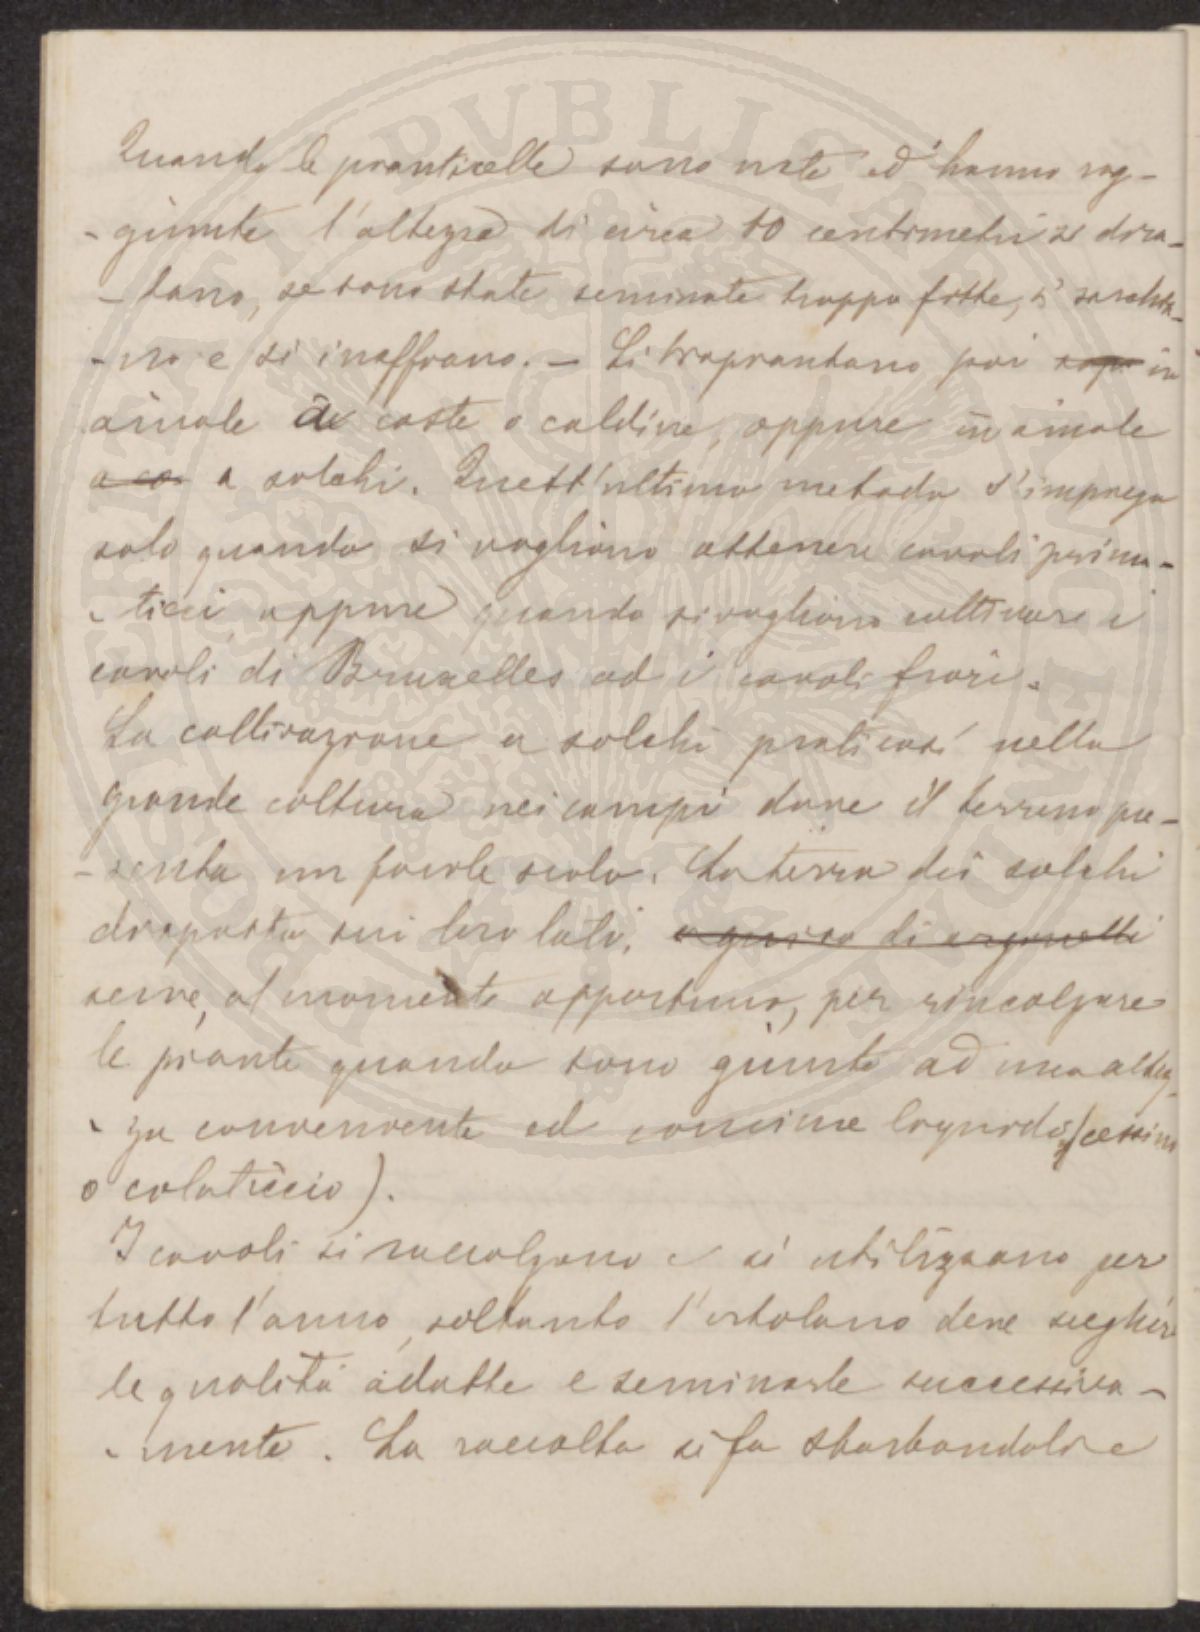 Quando le pianticelle sono nate ed hanno rag-
-giunte l'altezza di circa 10 centimetri si dira-
-dano, se sono state seminate troppo fitte, si sarchia-
-no e si inaffiano. - Si trapiantano poi in
aiuole a coste o caldine, oppure in aiuole
a co a solchi. Quest'ultimo metodo s'impiega
solo quando si vogliono ottenere cavoli prima-
-ticci, oppure quando si vogliono coltivare i
cavoli di Bruxelles od i cavoli fiori.
La coltivazione a solchi praticasi nella
grande coltura nei campi dove il terreno pre-
-senta un facile scolo. La terra dei solchi
disposta sui loro lati, a guisa di arginelli
serve, al momento opportuno, per rincalzare
le piante quando sono giunte ad una altez-
-za conveniente ed concime liquido (cessino
o colaticcio).
I cavoli si raccolgono e si utilizzano per
tutto l'anno, soltanto l'ortolano deve sceglier
le qualità adatte e seminarle successiva-
-mente. La raccolta si fa sbarbandoli e
PVBLICAE